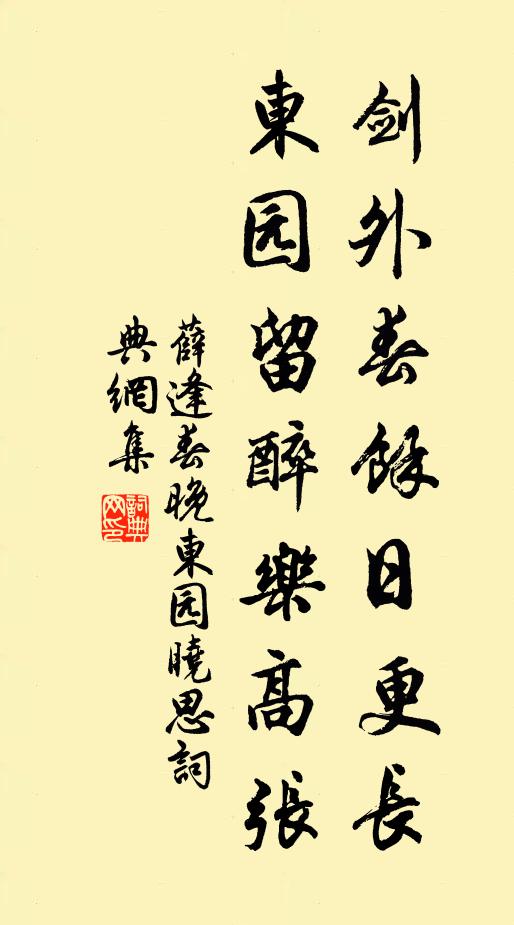 剑外春餘日更長
東园留醉樂高張
薛逢春晚東园曉思詞
典網集
詞典
网印